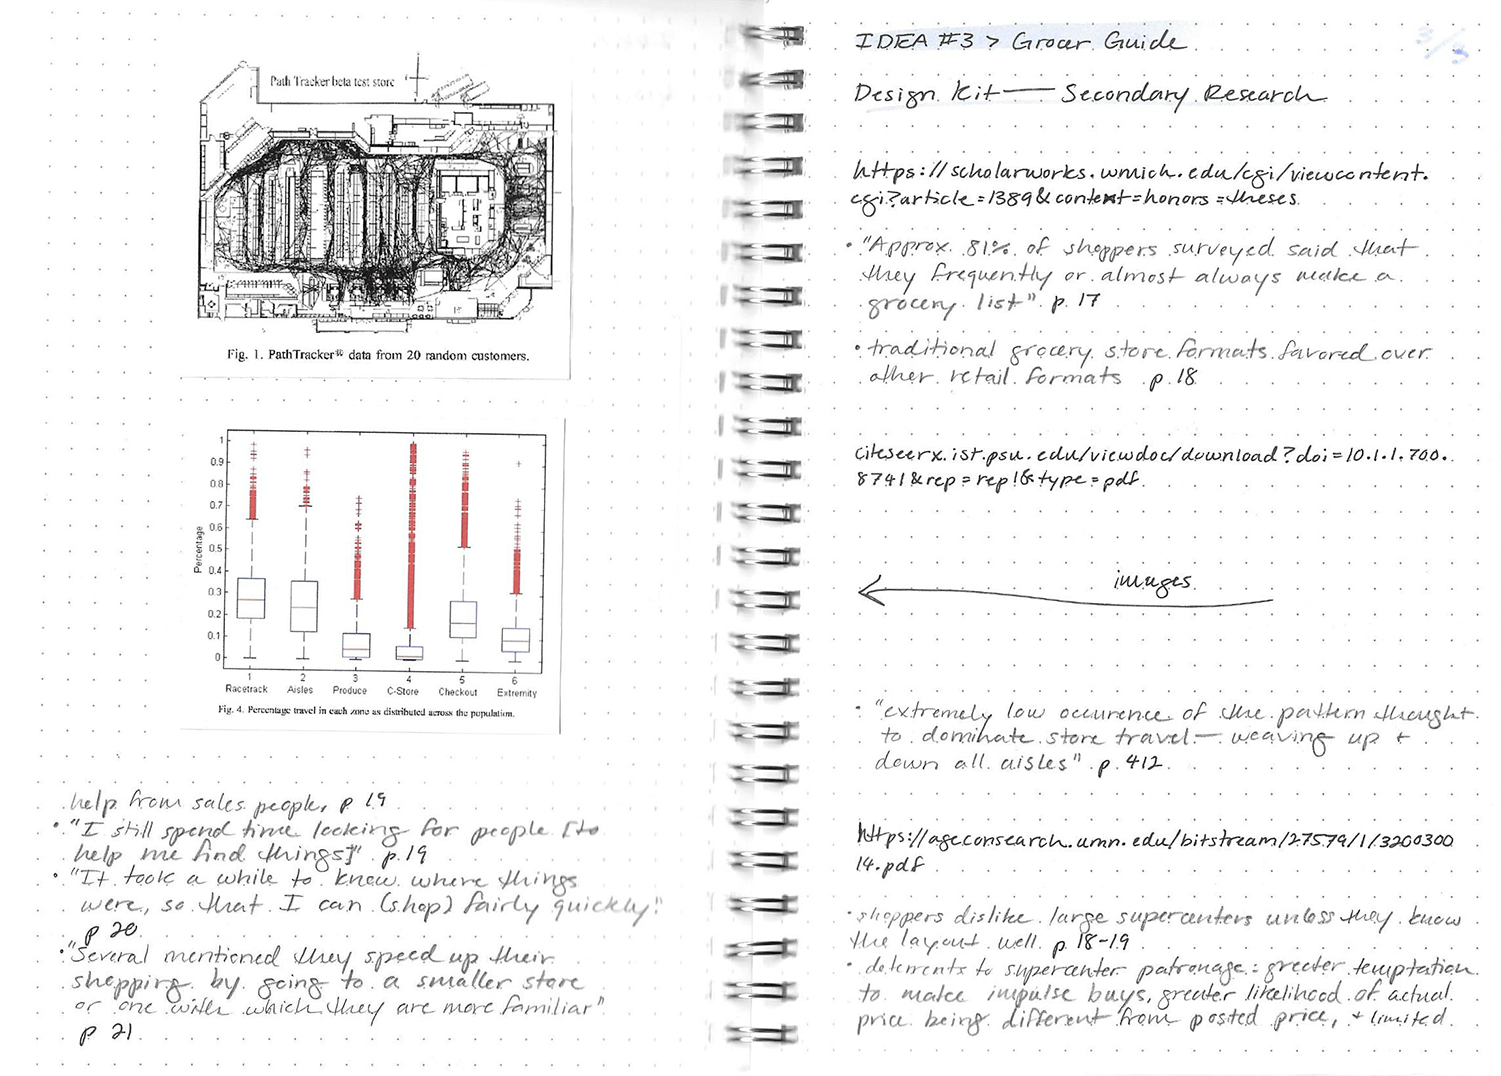 Path Tracker beta test store
Fig. 1. PathTracker® data from 20 random customers.
1
0.9
0.8
0.7
0.6
0.5
0.4
0.3
0.2
0.1
0
Percentage
1 2 3 4 5 6
Racetrack Aisles Produce C-Store Checkout Extremity
Fig. 4. Percentage travel in each zone as distributed across the population.
help from sales people, p 19
• "I still spend time looking for people [to
help me find things]" p.19
• "It took a while to know where things
were, so that I can (shop) fairly quickly."
p 20
• "Several mentioned they speed up their
shopping by going to a smaller store
or one with which they are more familiar"
p 21
IDEA #3 > Grocer Guide
3/3
Design Kit — Secondary Research
https://scholarworks.wmich.edu/cgi/viewcontent.
cgi?article=1389&context=honors=theses
• "Approx. 81% of shoppers surveyed said that
they frequently or almost always make a
grocery list" p. 17
• traditional grocery store formats favored over
other retail formats p. 18
citeseerx.ist.psu.edu/viewdoc/download?doi=10.1.1.700.
8741&rep=rep1&type=pdf
images
• "extremely low occurence of the pattern thought
to dominate store travel — weaving up +
down all aisles" p. 412
https://ageconsearch.umn.edu/bitstream/27579/1/3200300
14.pdf
• shoppers dislike large supercenters unless they know
the layout well. p. 18-19
• deterrents to supercenter patronage: greater temptation
to make impulse buys, greater likelihood of actual
price being different from posted price, + limited